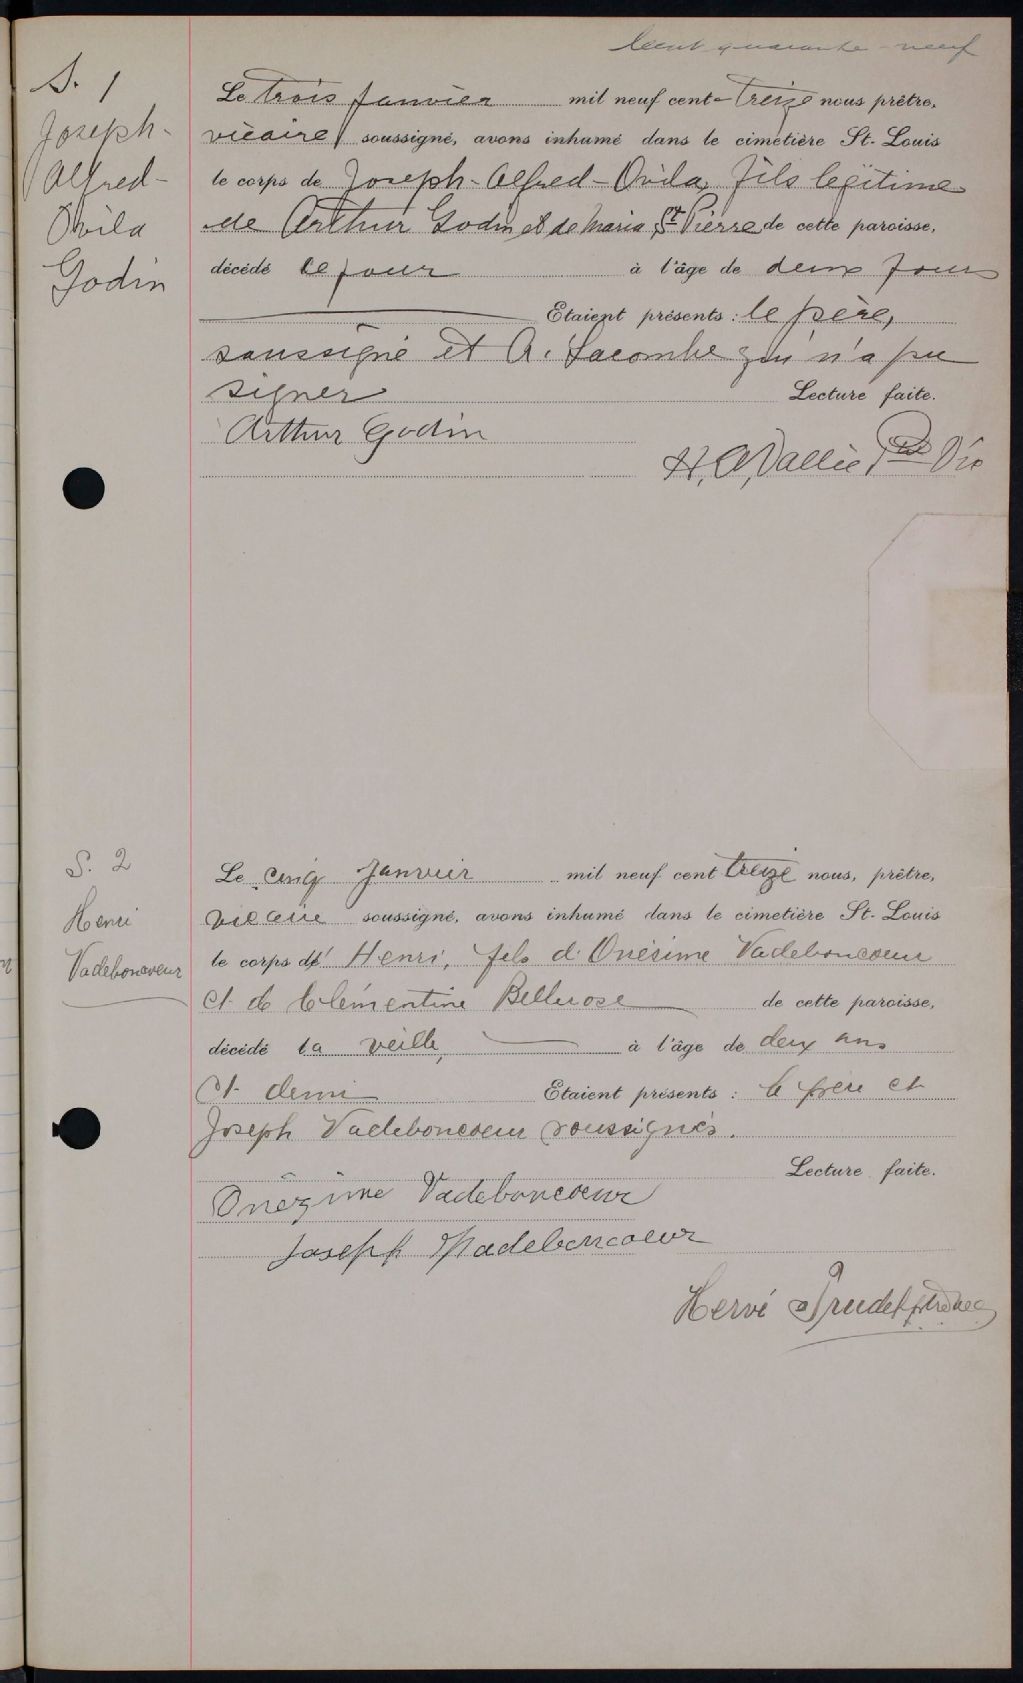 Cent quarante-neuf
S. 1
Joseph-
Alfred-
Ovila
Godin
Le trois janvier mil neuf cent-treize nous prêtre,
vicaire soussigné, avons inhumé dans le cimetière St-Louis
le corps de Joseph-Alfred-Ovila, fils légitime
de Arthur Godin et de Maria St Pierre de cette paroisse,
décédé ce jour à l'âge de deux jours
Etaient présents : le père,
soussigné et A. Lacombe qui n'a pu
signer Lecture faite.
Arthur Godin
H. A. Vallée Ptre Vic
S. 2
Henri
Vadeboncoeur
Le cinq janvier mil neuf cent treize nous, prêtre,
vicaire soussigné, avons inhumé dans le cimetière St-Louis
le corps de Henri, fils d'Onésime Vadeboncoeur
et de Clémentine Bellerose de cette paroisse,
décédé la veille, à l'âge de deux ans
et demi Etaient présents : le père et
Joseph Vadeboncoeur soussignés.
Lecture faite.
Onézime Vadeboncoeur
Joseph Vadeboncoeur
Hervé Trudel ptre vic